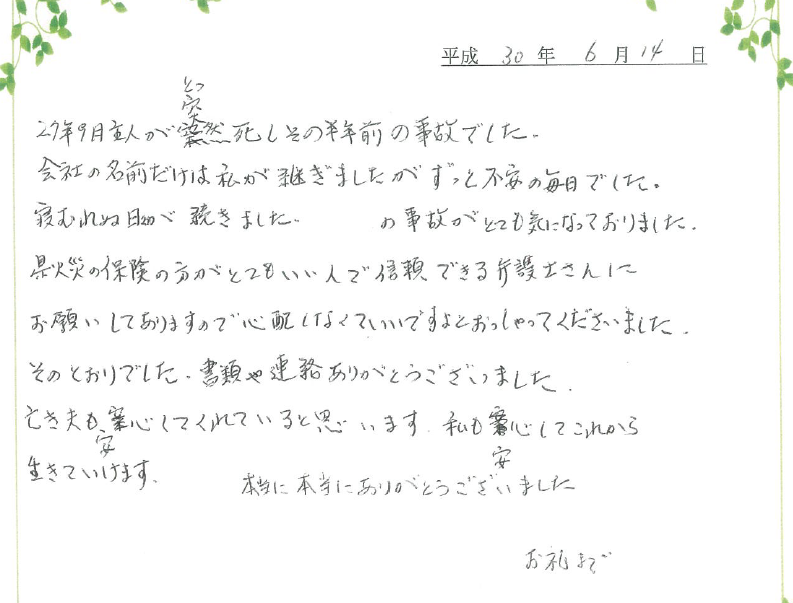 平成 30年 6月14日
27年9月主人が突然死しその半年前の事故でした。
会社の名前だけは私が継ぎましたがずっと不安の毎日でした。
寝むれぬ日々が続きました。 の事故がとても気になっておりました。
火災の保険の方がとてもいい人で信頼できる弁護士さんに
お願いしてありますので心配しなくていいですよとおっしゃってくださいました。
そのとおりでした。書類や連絡ありがとうございました。
亡き夫も安心してくれていると思います。私も安心してこれから
生きていけます。
本当に本当にありがとうございました
お礼まで